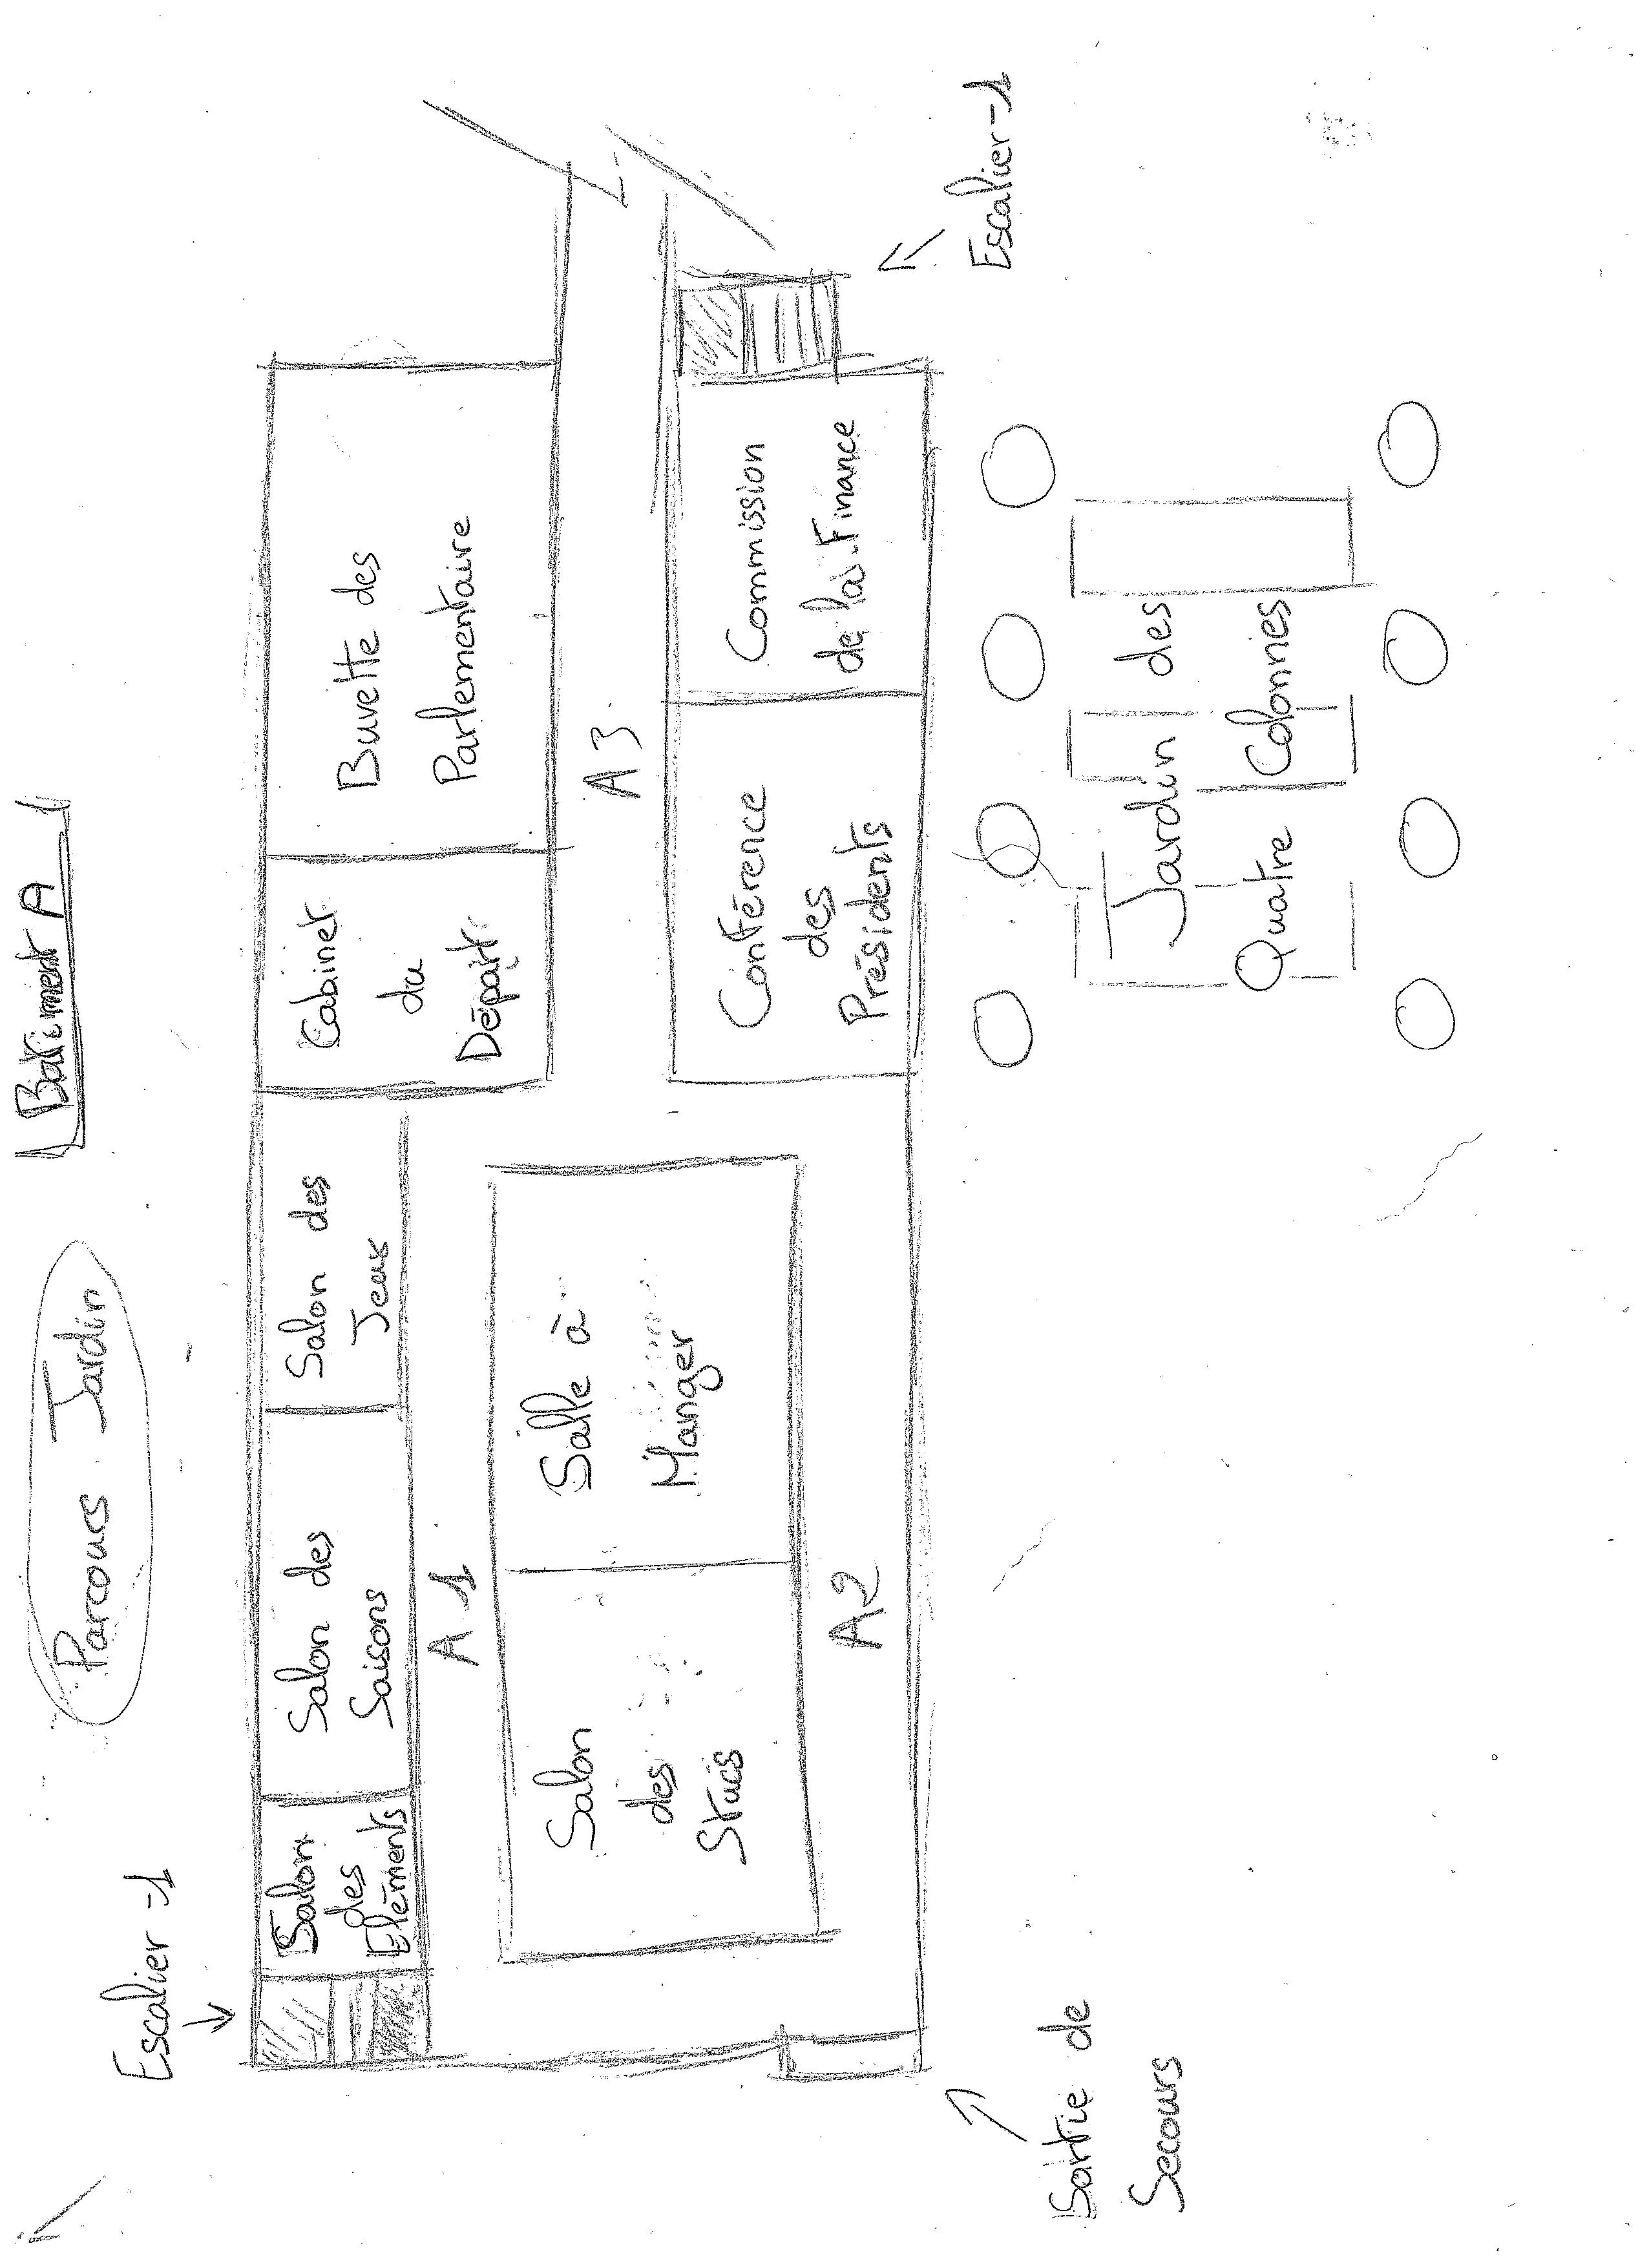 Bâtiment A
Parcours Jardin
Escalier -1
Salon
des
Eléments
Salon des
Saisons
Salon des
Jeux
Cabinet
du
Départ
Buvette des
Parlementaire
A 1
Salon
des
Stucs
Salle à
Manger
A 3
A2
Conférence
des
Présidents
Commission
de la Finance
Escalier -1
Sortie de
Secours
Jardin des
Quatre Colonnes